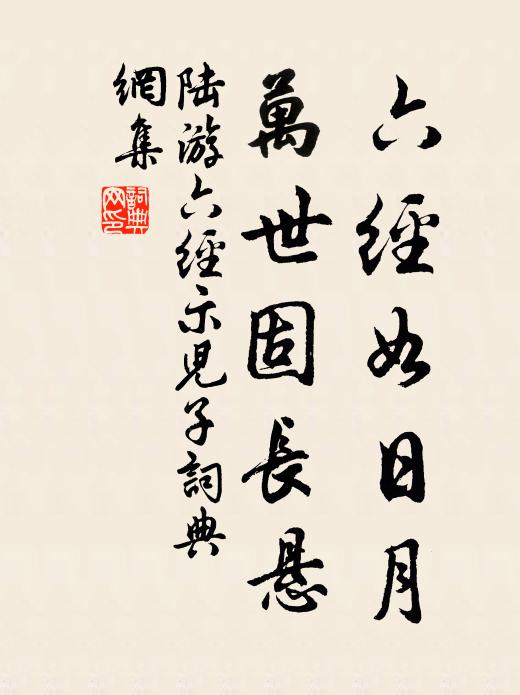 六經如日月
萬世固長懸
陸游六經示兒子詞典
網集
詞典
网印